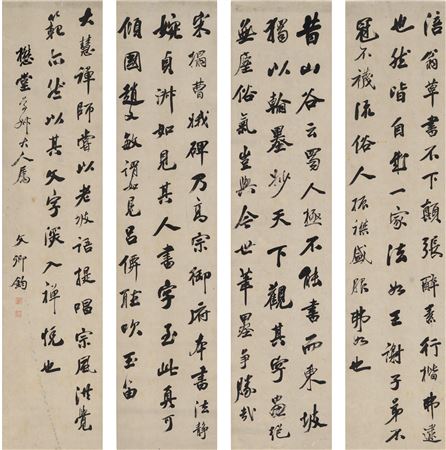 涪翁草書不下顛張醉素行楷弗逮
也然皆自成一家法如王謝子弟不
冠不襪流俗人振襟盛服弗如也
昔山谷云蜀人極不能書而東坡
獨以翰墨妙天下觀其字畫絕
無塵俗氣豈與今世筆墨爭勝哉
宋搨曹娥碑乃高宗御府本書法静
婉貞淑如見其人書字至此真可
傾國趙文敏謂如見呂吹玉笛
大慧禪師嘗以老坡語提唱宗風洪覺
範亦然以其文字深入禪悅也
懋堂大人屬
文卿鈞